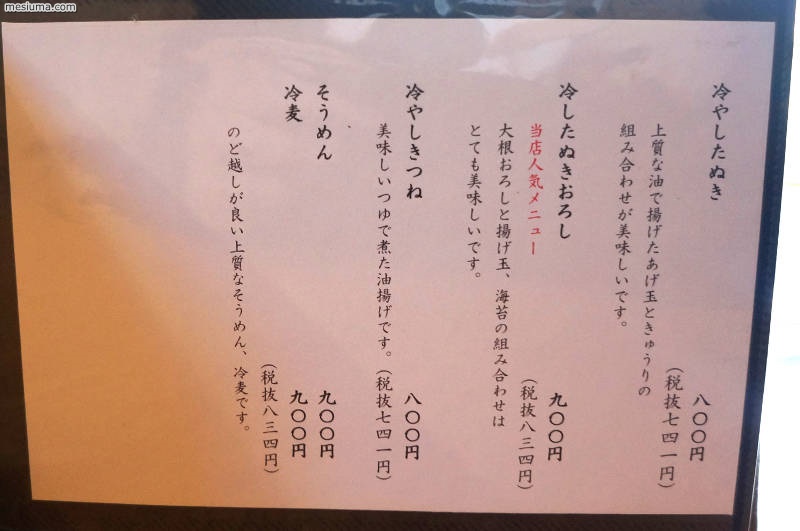 mesiuma.com
冷やしたぬき
八〇〇円
上質な油で揚げたあげ玉ときゅうりの
(税抜七四一円)
組み合わせが美味しいです。
冷したぬきおろし
九〇〇円
当店人気メニュー
(税抜八三四円)
大根おろしと揚げ玉、海苔の組み合わせは
とても美味しいです。
冷やしきつね
八〇〇円
美味しいつゆで煮た油揚げです。(税抜七四一円)
そうめん
九〇〇円
冷麦
九〇〇円
(税抜八三四円)
のど越しが良い上質なそうめん、冷麦です。